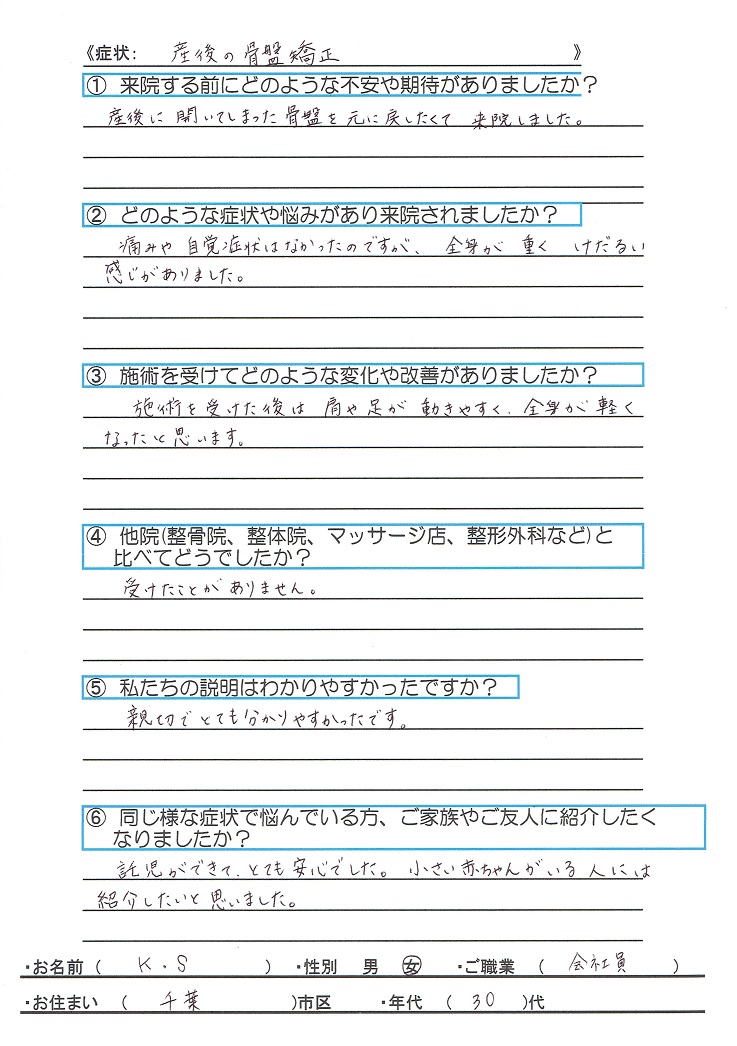 《症状: 産後の骨盤矯正 》
① 来院する前にどのような不安や期待がありましたか？
産後に開いてしまった骨盤を元に戻したくて 来院しました。
② どのような症状や悩みがあり来院されましたか？
痛みや自覚症状はなかったのですが、全身が重く けだるい
感じがありました。
③ 施術を受けてどのような変化や改善がありましたか？
施術を受けた後は 肩や足が動きやすく、全身が軽く
なったと思います。
④ 他院(整骨院、整体院、マッサージ店、整形外科など)と
比べてどうでしたか？
受けたことがありません。
⑤ 私たちの説明はわかりやすかったですか？
親切でとても分かりやすかったです。
⑥ 同じ様な症状で悩んでいる方、ご家族やご友人に紹介したく
なりましたか？
託児ができて、とても安心でした。小さい赤ちゃんがいる人には
紹介したいと思いました。
・お名前 ( K.S ) ・性別 男 女 ・ご職業 ( 会社員 )
・お住まい ( 千葉 )市区 ・年代 ( 30 )代